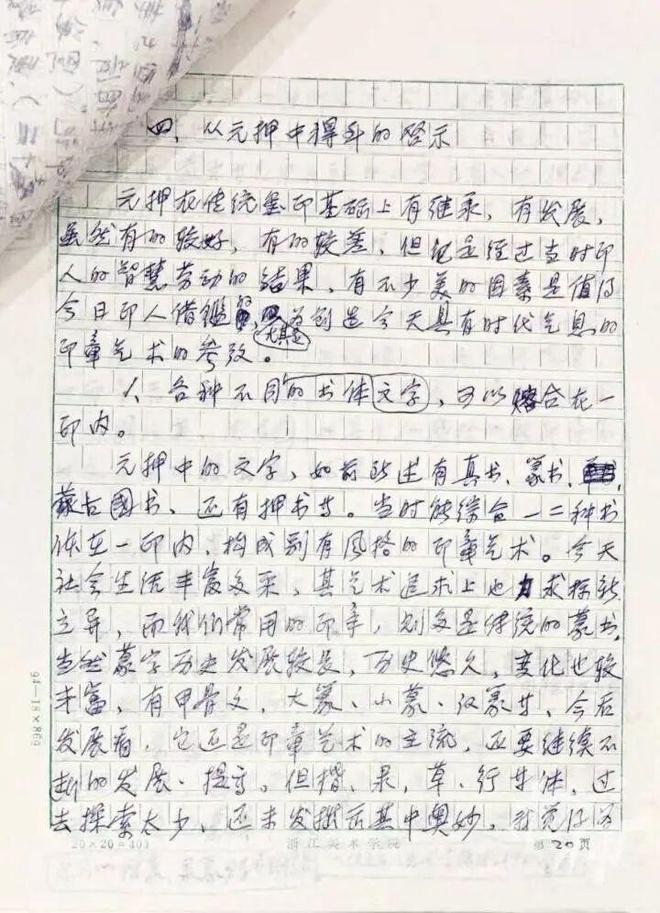 四、从元押中得到的啓示
元押在传统玺印基础上有继承，有发展，
虽然有的较好，有的较差，但都是经过当时印
人的智慧劳动的结果，有不少美的因素是值得
今日印人借鑑的，尤其是为创造今天具有时代气息的
印章艺术的参攷。
1、各种不同的书体文字，可以熔合在一
印内。
元押中的文字，如前所述有真书、篆书、
蒙古國书、还有押书等。当时能综合一二种书
体在一印内，构成别有风格的印章艺术。今天
社会生活丰富多采，其艺术追求上也力求标新
立异，而我们常用的印章，则多是传统的篆书，
当然篆字历史发展较长，历史悠久，变化也较
丰富，有甲骨文、大篆、小篆、汉篆等，今后
发展看，它还是印章艺术的主流，还要继续不
断的发展、提高。但楷、隶、草、行等体，过
去探索太少，还未发掘出其中奥妙，就觉得
20×20=400 浙江美术学院 第20页
94—18×869